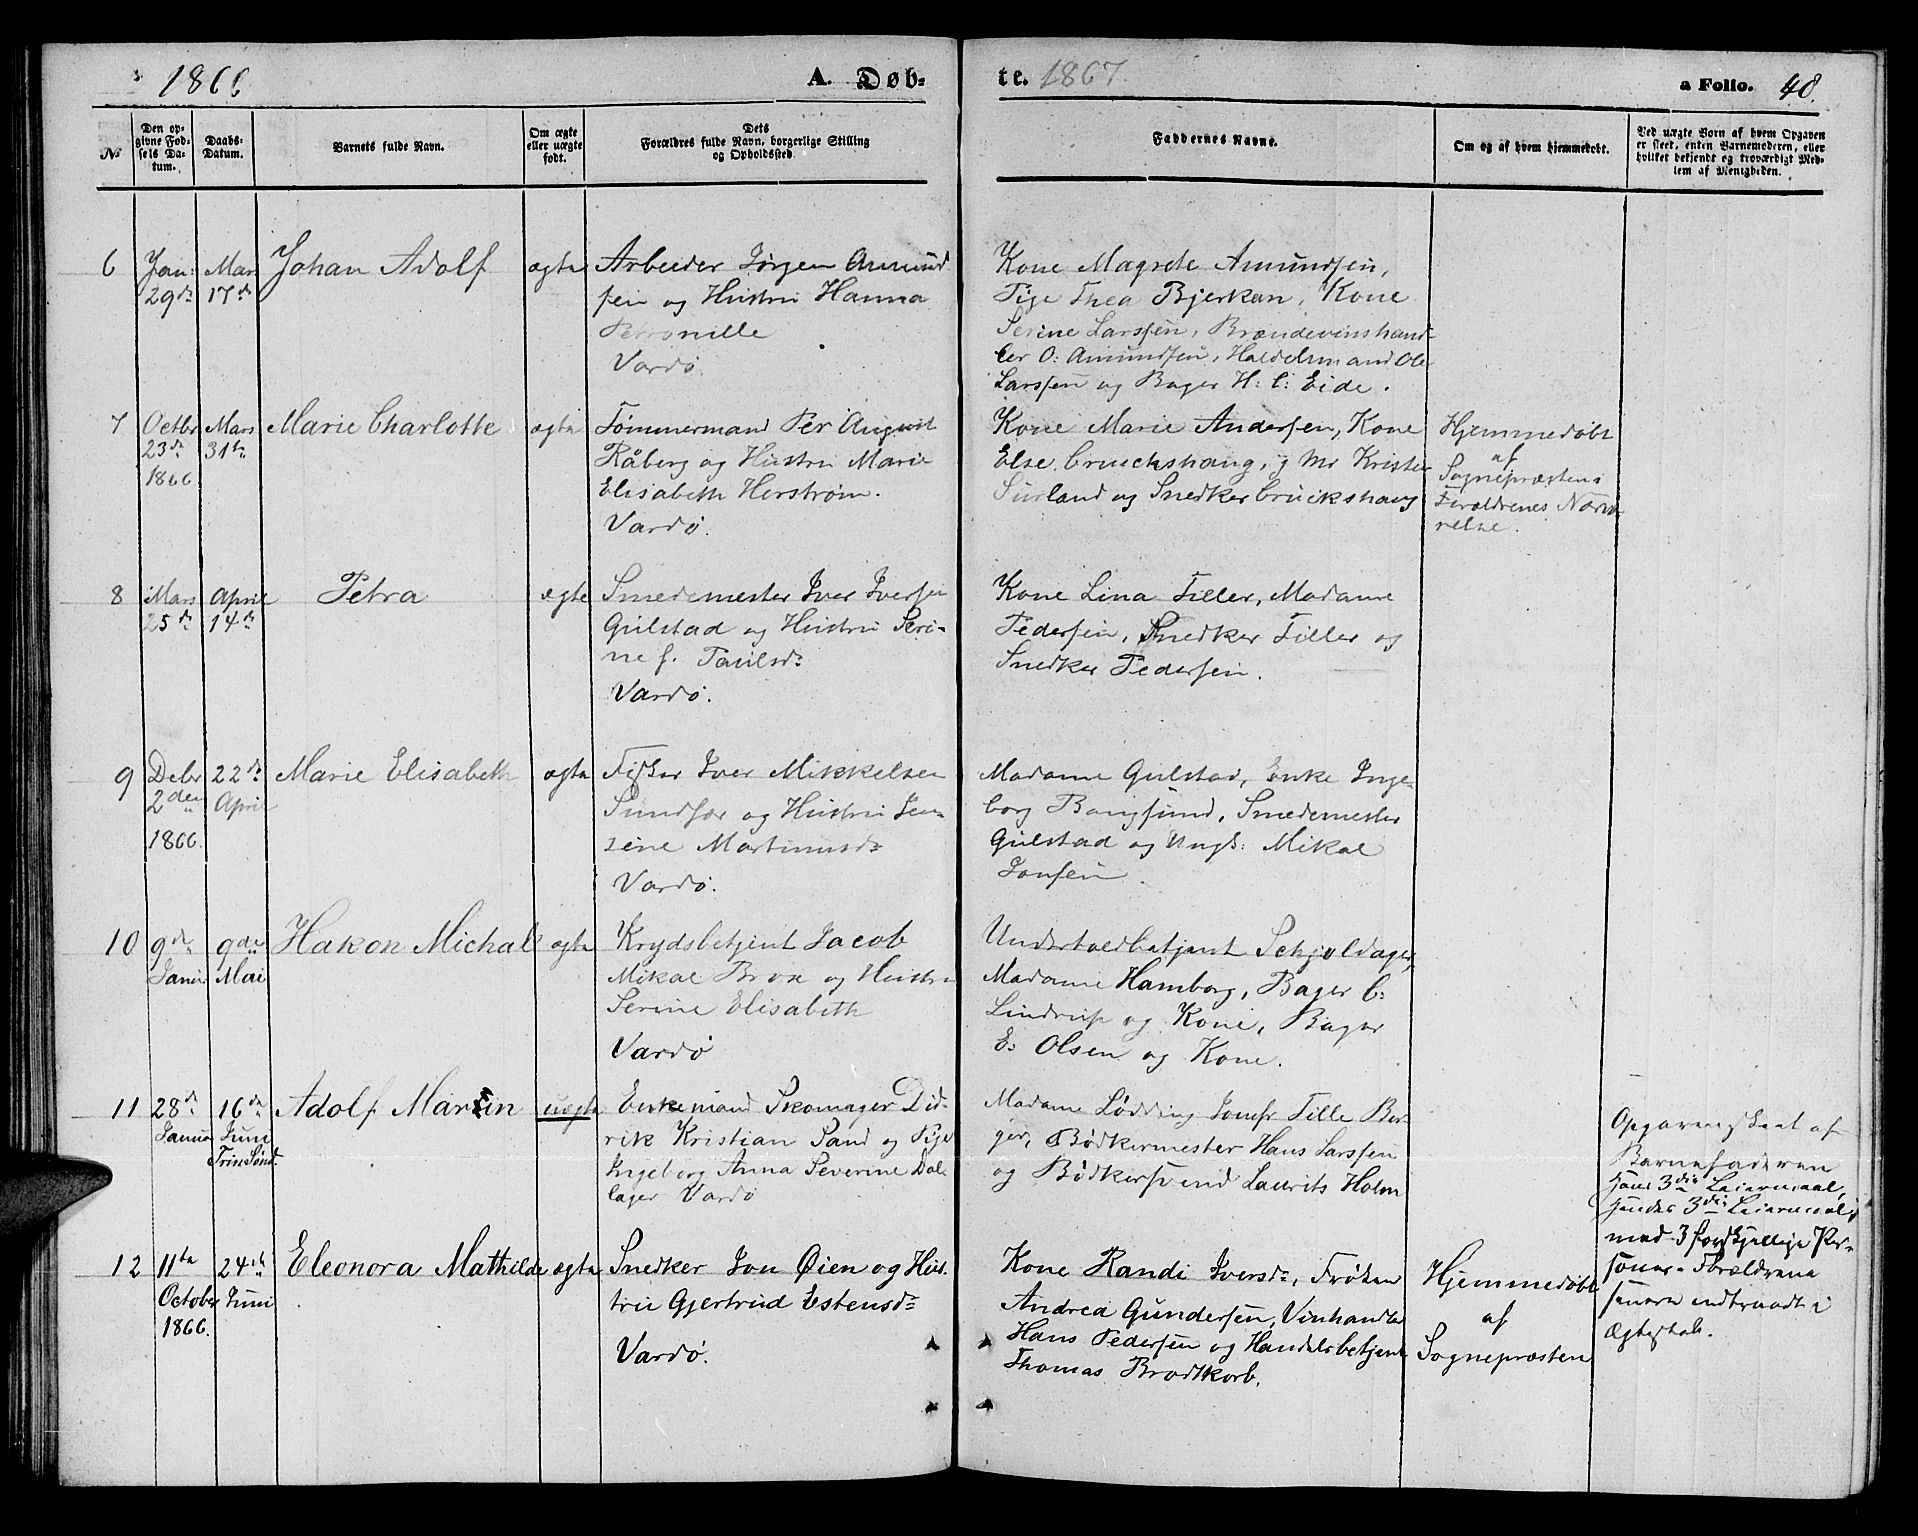 1866
A. Døb-
te. 1867
a Folio. 40.
No
Den op-
givne Fød-
sels Da-
tum.
Daabs-
Datum.
Barnets fulde Navn.
Om ægte
eller uægte
født.
Dets
Forældres fulde Navn, borgerlige Stilling
og Opholdssted.
Faddernes Navne.
Om og af hvem hjemmedøbt.
Ved uægte Born af hvem Opgaven
er skeet, enten Barnemoderen, eller
hvilket bekjendt og troværdigt Med-
lem af Menigheden.
6
Jan:
29de
Mars
17de
Johan Adolf
ægte
Arbeider Jørgen Amund
sen og Hustru Hanna
Petronille
Vardø.
Kone Magrete Amundsen,
Pige Thea Bjerkan, Kone
Serine Larssen, Brændevinshand-
ler O: Amundsen, Haldelsmand Ole
Larssen og Bager H: C: Eide.
7
Octbr
23de
1866
Mars
31te
Marie Charlotte
ægte
Tømmermand Per August
Råberg og Hustru Marie
Elisabeth Herstrøm.
Vardø.
Kone Marie Andersen, Kone
Else Cruickshang, Krister
Surland og Snedker Cruickshang
Hjemmedøbt
af
Sognepræsten i
Forældrenes Nærvæ-
relse.
8
Mars
25de
April
14de
Petra
ægte
Smedemester Iver Iversen
Gulstad og Hustru Seri-
ne f. Paulsd:
Vardø.
Kone Lina Tiller, Madame
Pedersen, Snedker Tiller og
Snedker Pedersen.
9
Debr
2den
1866.
22de
April
Marie Elisabeth
ægte
Fisker Iver Mikkelsen
Sundfær og Hustru Jen-
sine Martinusd:
Vardø.
Madame Gulstad, Enke Inge-
borg Bangsund, Smedemester
Gulstad og Ungk: Mikal
Jonsen
10
9de
Janu
9de
Mai
Hakon Michal
ægte
Krydsbetjent Jacob
Mikal Brox og Hustru
Serine Elisabeth
Vardø
Undertoldbetjent Schjoldager,
Madame Hamborg, Bager C:
Lindrup og Kone, Bager
E: Olsen og Kone.
11
28de
Janua
16de
Juni
Trin Sønd.
Adolf Martin
uægte
Enkemand Skomager Did-
rik Kristian Sand og Pige
Ingeborg Anna Severine Dal-
lager Vardø
Madame Lødding Jomfr Tille Ber-
ger, Bødkermester Hans Larssen
og Bødkersvend Laurits Holm
Opgaven skeet af
Barnefaderen
hans 3die Leiermaal,
hendes 3die Leiermaal,
med 3 forskjellige Per-
soner. Forældrene
senere indtraadt i
Ægteskab.
12
11te
October
1866.
24de
Juni
Eleonora Mathilde
ægte
Snedker Jon Øien og Hus-
tru Gjertrud Estensd:
Vardø.
Kone Randi Iversd:, Frøken
Andrea Gundersen, Vinhandler
Hans Pedersen og Handelsbetjent
Thomas Brodtkorb.
Hjemmedøbt
af
Sognepræsten